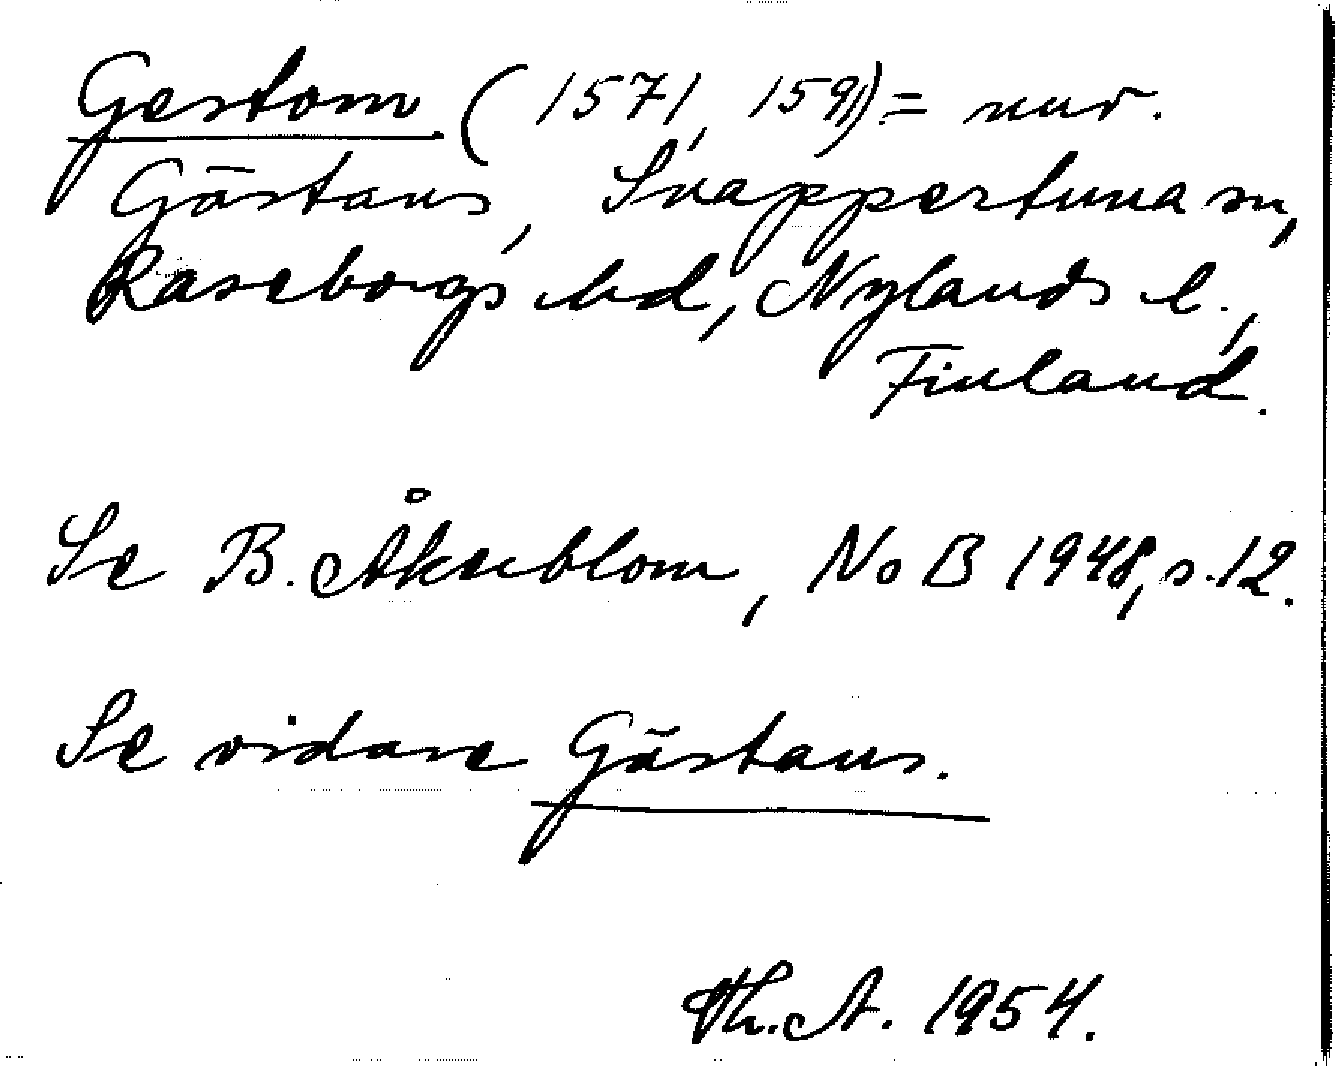 Gestom. (1571, 1591) = nuv.
Gästans, Snappertuna sn,
Raseborgs hd, Nylands l.,
Finland.
Se B. Åkerblom, NoB 1948, s. 12.
Se vidare Gästans.
Th. A. 1954.